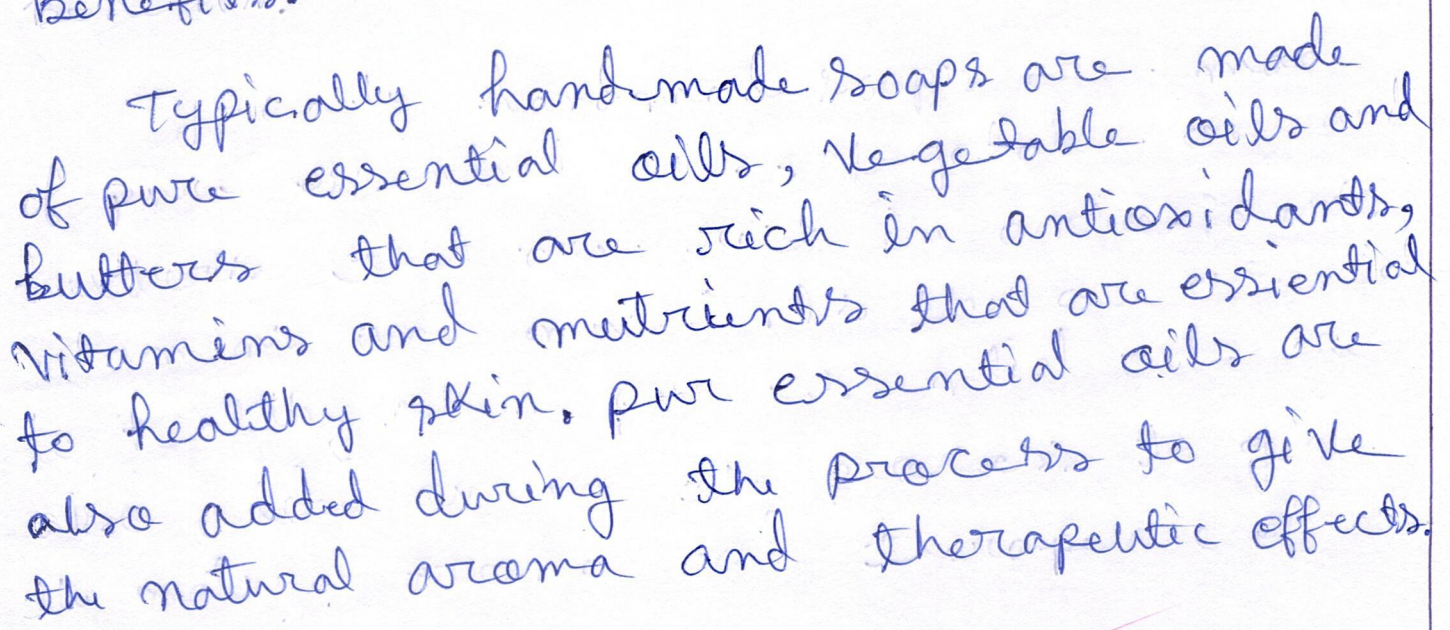 Benefits.
Typically handmade soaps are made
of pure essential oils, vegetable oils and
butters that are rich in antioxidants,
vitamins and nutrients that are essiential
to healthy skin. pur essential oils are
also added during the process to give
the natural aroma and therapeutic effects.